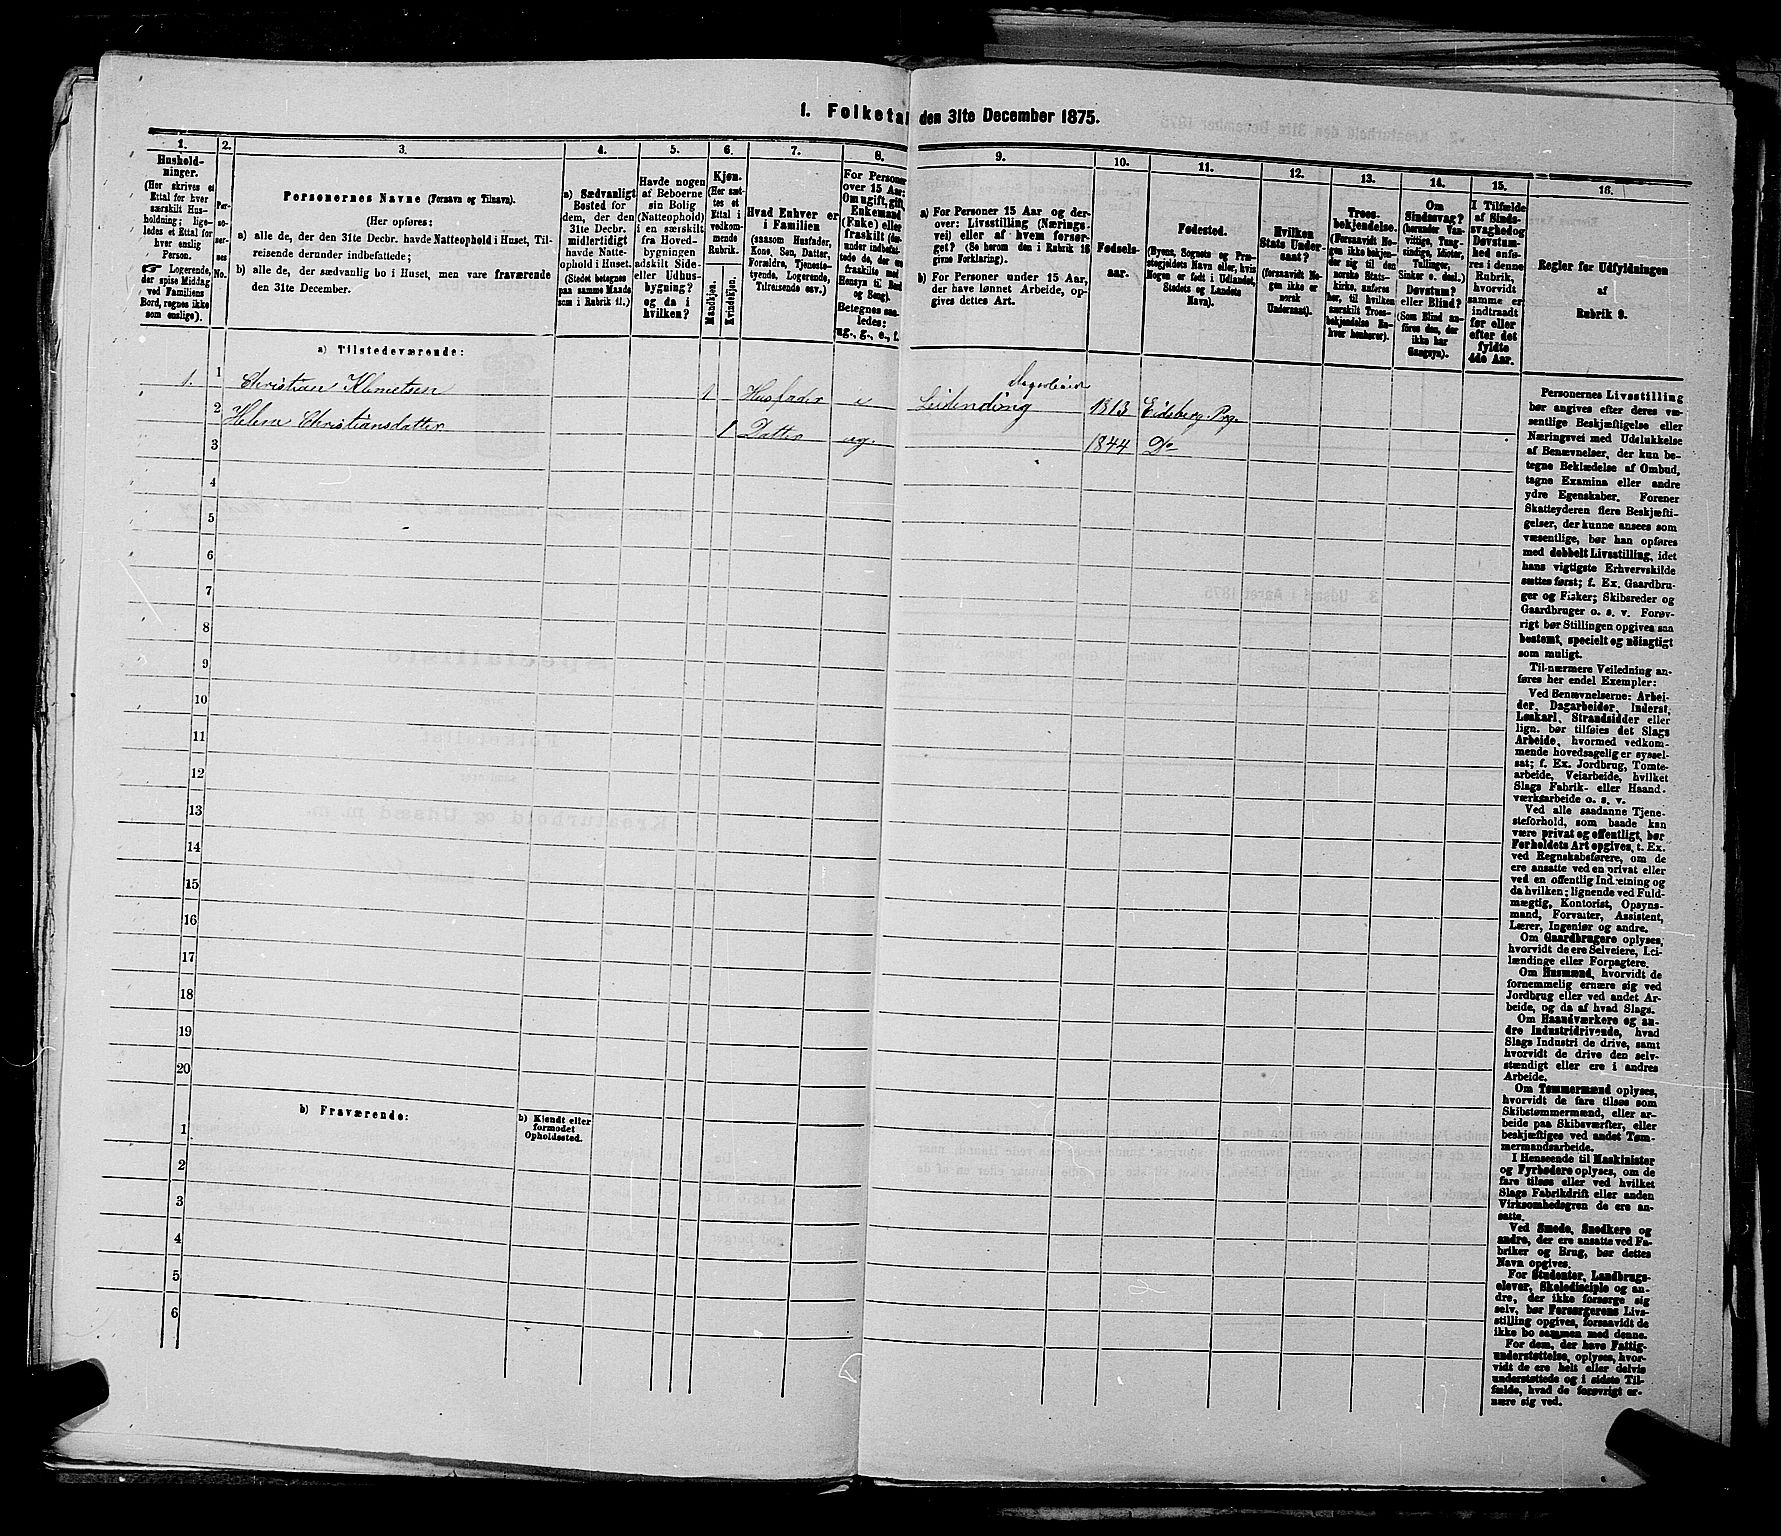 1. Folketal den 31te December 1875.
1.
2.
3.
4.
5.
6.
7.
8.
9.
10.
11.
12.
13.
14.
15.
16.
Hushold-
ninger.
(Her skrives et
Ettal for hver
særskilt Hus-
holdning; lige-
ledes et Ettal for
hver enslig
Person.
☞ Logerende,
der spise Middag
ved Familiens
Bord, regnes ikke
som enslige).
Per-
so-
ner-
nes
No.
Personernes Navne (Fornavn og Tilnavn).
(Her opføres:
a) alle de, der den 31te Decbr. havde Natteophold i Huset, Til-
reisende derunder indbefattede;
b) alle de, der sædvanlig bo i Huset, men vare fraværende
den 31te December.
a) Sædvanligt
Bosted for
dem, der den
31te Decbr.
midlertidigt
havde Natte-
ophold i Huset.
(Stedet betegnes
paa samme Maade
som i Rubrik 11.)
Havde nogen
af Beboerne
sin Bolig
(Natteophold)
i en særskilt
fra Hoved-
bygningen
adskilt Side-
eller Udhus-
bygning?
og da i
hvilken?
Kjøn.
(Her sæt-
tes et
Ettal i
vedkom-
mende
Rubrik.
Mandkjøn.
Kvindekjøn.
Hvad Enhver er
i Familien
(saasom Husfader,
Kone, Søn, Datter,
Forældre, Tjeneste-
tyende, Logerende,
Tilreisende osv.)
For Personer
over 15 Aar:
Om ugift, gift,
Enkemand
(Enke) eller
fraskilt (der-
under indbefat-
tede de, der ere
fraskilte med
Hensyn til Bord
og Seng).
Betegnes saa-
ledes:
ug., g., e., f.
a) For Personer 15 Aar og der-
over: Livsstilling (Nærings-
vei) eller af hvem forsør-
get? (Se herom den i Rubrik 16
givne Forklaring).
b) For Personer under 15 Aar,
der have lønnet Arbeide, op-
gives dettes Art.
Fødsels-
aar.
Fødested.
(Byens, Sognets og Præ-
stegjeldets Navn eller, hvis
Nogen er født i Udlandet,
Stedets og Landets
Navn).
Hvilken
Stats Under-
saat?
(forsaavidt No-
gen ikke er
norsk
Undersaat).
Troes-
bekjendelse.
(Forsaavidt No-
gen ikke bekjen-
der sig til den
norske Stats-
kirke, anføres
her, til hvilken
særskilt Troes-
bekjendelse En-
hver henhører).
Om
Sindssvag?
(herunder Van-
vittige, Tung-
sindige, Idioter,
Tullinger,
Sinker o. desl.)
Døvstum?
eller Blind?
(Som Blind an-
føres den, der
ikke har
Gangsyn).
I Tilfælde
af Sinds-
svaghed og
Døvstum-
hed anfø-
res i denne
Rubrik,
hvorvidt
samme er
indtraadt
før eller
efter det
fyldte
4de Aar.
Regler for Udfyldningen
af
Rubrik 9.
a) Tilstedeværende:
1. 1 Christian Klemetsen 1 Husfader e Leilending Dagarbeider 1813 Eidsberg Prg.
2 Helene Christiansdatter 1 Datter ug. 1844 Do
3
4
5
6
7
8
9
10
11
12
13
14
15
16
17
18
19
20
b) Fraværende:
b) Kjendt eller
formodet
Opholdssted.
1
2
3
4
5
6
Personernes Livsstilling
bør angives efter deres væ-
sentlige Beskjæftigelse eller
Næringsvei med Udelukkelse
af Benævnelser, der kun be-
tegne Beklædelse af Ombud,
tagne Examina eller andre
ydre Egenskaber. Forener
Skatteyderen flere Beskjæfti-
gelser, der kunne ansees som
væsentlige, bør han opføres
med dobbelt Livsstilling, idet
hans vigtigste Erhvervskilde
sættes først; f. Ex. Gaardbru-
ger og Fisker; Skibsreder og
Gaardbruger o. s. v. Forøv-
rigt bør Stillingen opgives saa
bestemt, specielt og nøiagtigt
som muligt.
Til nærmere Veiledning an-
føres her endel Exempler:
Ved Benævnelserne: Arbei-
der, Dagarbeider, Inderst,
Løskarl, Strandsidder eller
lign. bør tilføies det Slags
Arbeide, hvormed vedkom-
mende hovedsagelig er syssel-
sat; f. Ex. Jordbrug, Tomte-
arbeide, Veiarbeide, hvilket
Slags Fabrik- eller Haand-
værksarbeide o. s. v.
Ved alle saadanne Tjene-
steforhold, som baade kan
være privat og offentligt, bør
Forholdets Art opgives, t. Ex.
ved Regnskabsførere, om de
ere ansatte ved en privat eller
ved en offentlig Indretning og
da hvilken; lignende ved Fuld-
mægtig, Kontorist, Opsyns-
mand, Forvalter, Assistent,
Lærer, Ingeniør og andre.
Om Gaardbrugere oplyses,
hvorvidt de ere Selveiere, Lei-
lændinge eller Forpagtere.
Om Husmænd, hvorvidt de
fornemmelig ernære sig ved
Jordbrug eller ved andet Ar-
beide, og da af hvad Slags.
Om Haandværkere og an-
dre Industridrivende, hvad
Slags Industri de drive, samt
hvorvidt de drive den selv-
stændigt eller ere i andres
Arbeide.
Om Tømmermænd oplyses,
hvorvidt de fare tilsøs som
Skibstømmermænd, eller ar-
beide paa Skibsværfter, eller
beskjæftiges ved andet Tøm-
mermandsarbeide.
I Henseende til Maskinister
og Fyrbødere oplyses, om de
fare tilsøs eller ved hvilket
Slags Fabrikdrift eller anden
Virksomhedsgren de ere an-
satte.
Ved Smede, Snedkere og
andre, der ere ansatte ved Fa-
briker og Brug, bør dettes
Navn opgives.
For Studenter, Landbrugs-
elever, Skoledisciple og an-
dre, der ikke forsørge sig
selv, bør Forsørgerens Livs-
stilling opgives, forsaavidt de
ikke bo sammen med denne.
For dem, der have Fattig-
understøttelse, oplyses, hvor-
vidt de ere helt eller delvis
understøttede og i sidste Til-
fælde, hvad de forøvrigt er-
nære sig ved.